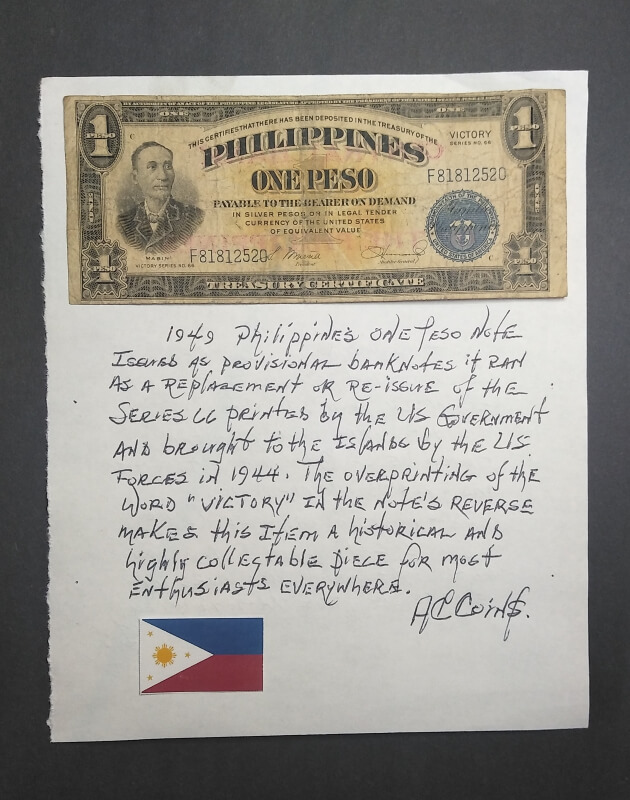 BY AUTHORITY OF AN ACT OF THE PHILIPPINE LEGISLATURE APPROVED BY THE PRESIDENT OF THE UNITED STATES
ONE
1
PESO
1
PESO
THIS CERTIFIES THAT THERE HAS BEEN DEPOSITED IN THE TREASURY OF THE
PHILIPPINES
VICTORY
SERIES NO. 66
ONE PESO
F81812520
PAYABLE TO THE BEARER ON DEMAND
IN SILVER PESOS OR IN LEGAL TENDER
CURRENCY OF THE UNITED STATES
OF EQUIVALENT VALUE
MABINI
VICTORY SERIES NO. 66
F81812520
President
1
PESO
1
PESO
TREASURY CERTIFICATE
1949 Philippines ONE Peso NOTE
ISSUED AS PROVISIONAL BANKNOTES it RAN
AS A REPLACEMENT OR RE-ISSUE of the
SERIES 66 PRINTED by the US GOVERNMENT
AND brought to the ISLANDS by the US
FORCES IN 1944. THE OVERPRINTING of the
WORD "VICTORY" IN the NOTE'S REVERSE
MAKES this ITEM A historical AND
highly COLLECTABLE PIECE for MOST
ENTHUSIASTS EVERYWHERE.
AC COIN$.